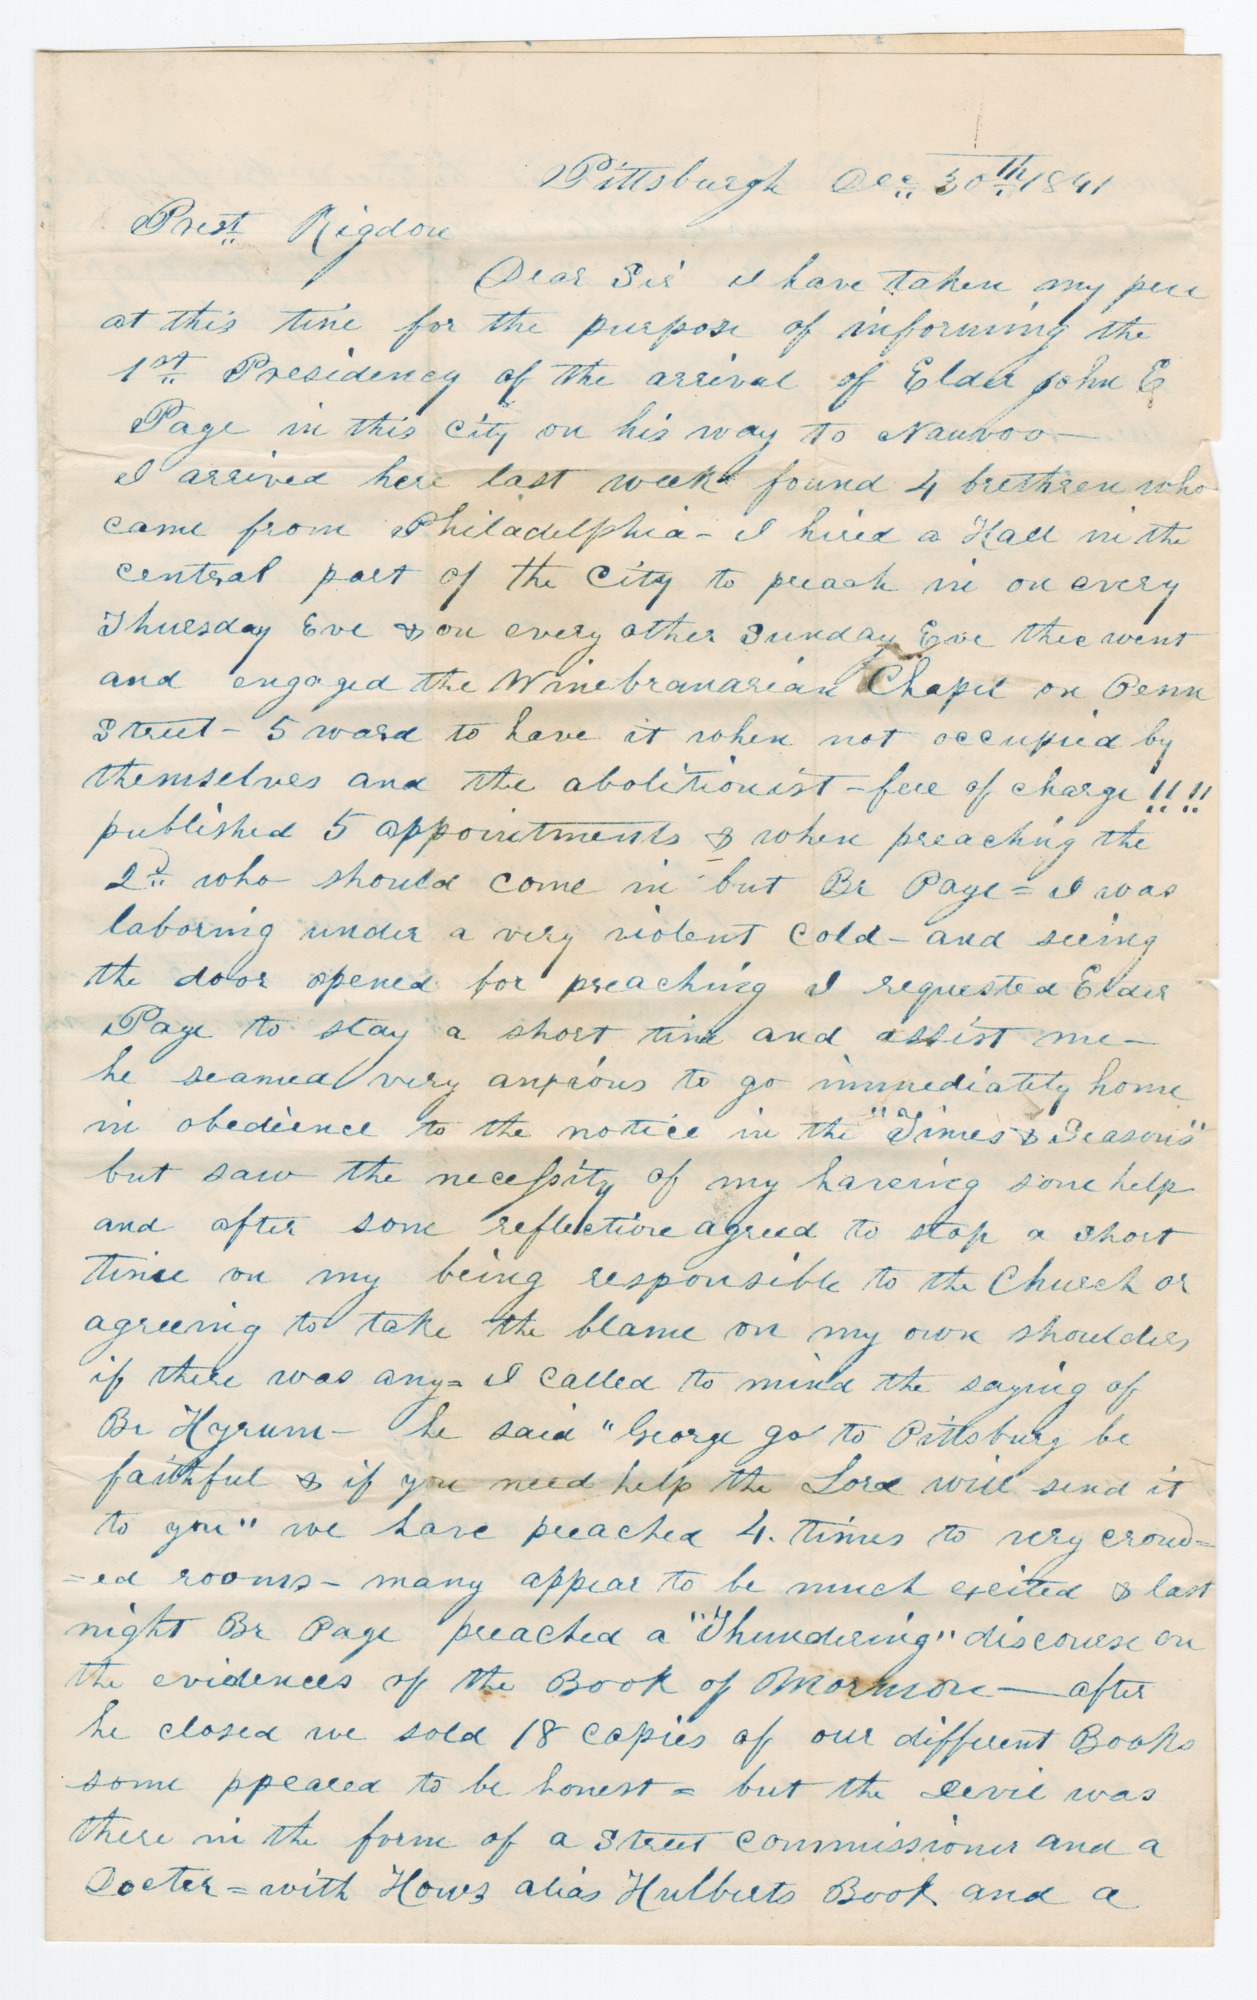 Pittsburgh Dec 30th 1841
Prest Rigdon
Dear Sir I have taken my pen
at this time for the purpose of informing the
1st Presidency of the arrival of Elder John E
Page in this City on his way to Nauvoo —
I arrived here last week found 4 brethren who
came from Philadelphia - I hired a Hall in the
central part of the City to preach in on every
Thursday Eve & on every other Sunday Eve then went
and engaged the Winebranarian Chapel on Penn
Street - 5 ward to have it when not occupied by
themselves and the abolitionist - free of charge !!!!
published 5 appointments & when preaching the
2d who should come in but Br Page = I was
laboring under a very violent Cold - and seeing
the door opened for preaching I requested Elder
Page to stay a short time and assist me —
he seamed very anxious to go immediately home
in obedience to the notice in the "Times & Seasons"
but saw the necessity of my haveing some help
and after some reflection agreed to stop a short
time on my being responsible to the Church or
agreeing to take the blame on my own shoulders
if there was any = I called to mind the saying of
Br Hyrum - he said "George go to Pittsburg be
faithful & if you need help the Lord will send it
to you" we have preached 4. times to very crowd=
=ed rooms - many appear to be much excited & last
night Br Page preached a "Thundering" discourse on
the evidences of the Book of Mormon — after
he closed we sold 18 copies of our different Books
some ppeared to be honest = but the Devil was
there in the form of a Street Commissioner and a
Docter = with Hows alias Hulberts Book and a